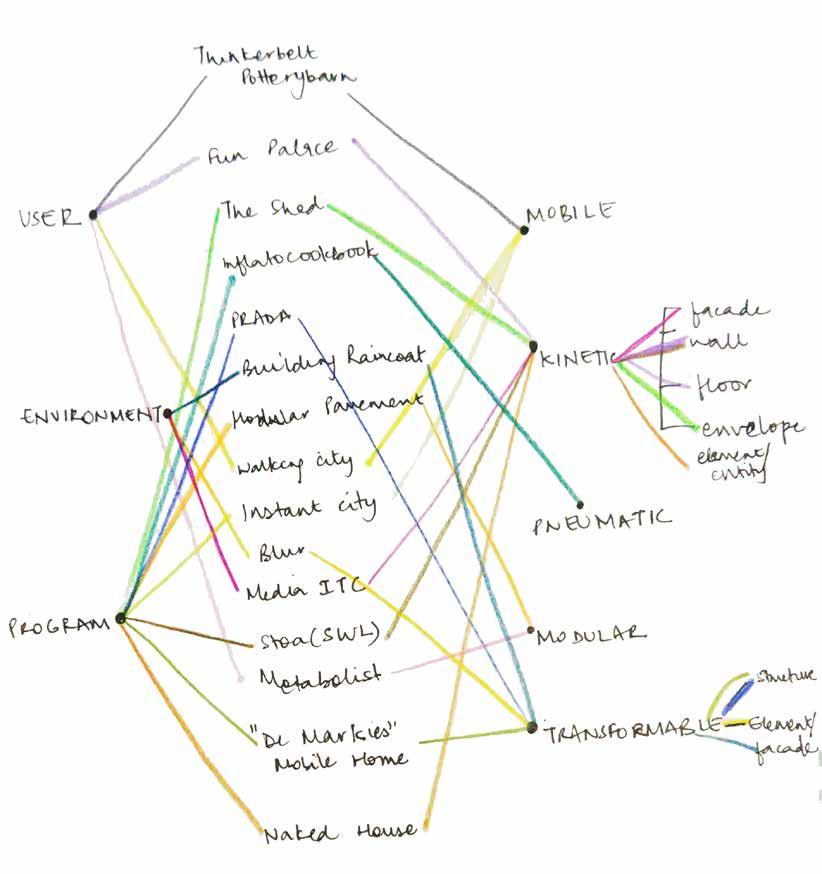 Thinkerbelt
Potterybarn
Fun Palace
USER
The Shed
MOBILE
Inflatocookbook
PRADA
Building Raincoat
KINETIC
facade
wall
floor
envelope
element/
entity
ENVIRONMENT
Modular Pavement
Walking city
Instant city
PNEUMATIC
Blur
Media ITC
PROGRAM
Stoa(SWL)
MODULAR
Metabolist
"De Markies"
Mobile Home
TRANSFORMABLE
Structure
Element/
facade
Naked House